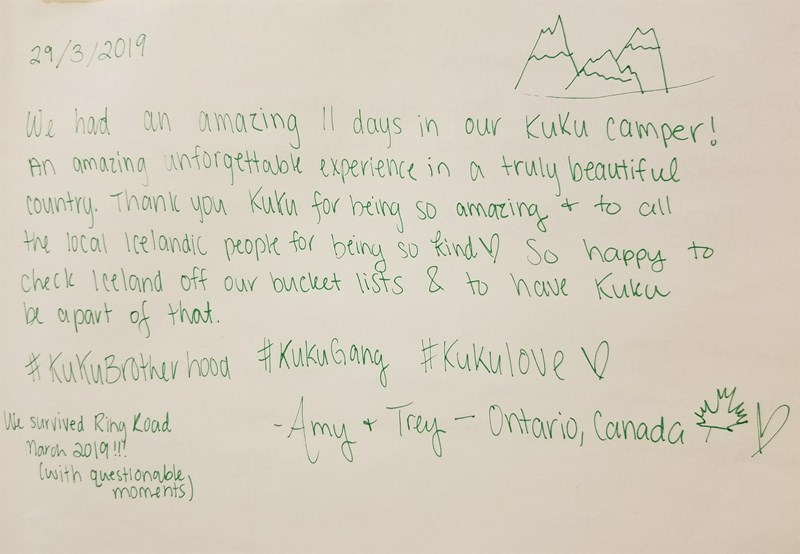 29/3/2019
We had an amazing 11 days in our KuKu camper!
An amazing unforgettable experience in a truly beautiful
country. Thank you KuKu for being so amazing + to all
the local Icelandic people for being so kind♡ So happy to
check Iceland off our bucket lists & to have Kuku
be apart of that.
#KuKuBrotherhood #KukuGang #Kukulove ♡
-Amy + Trey - Ontario, Canada
We survived Ring Road
March 2019!!!
(with questionable
moments)